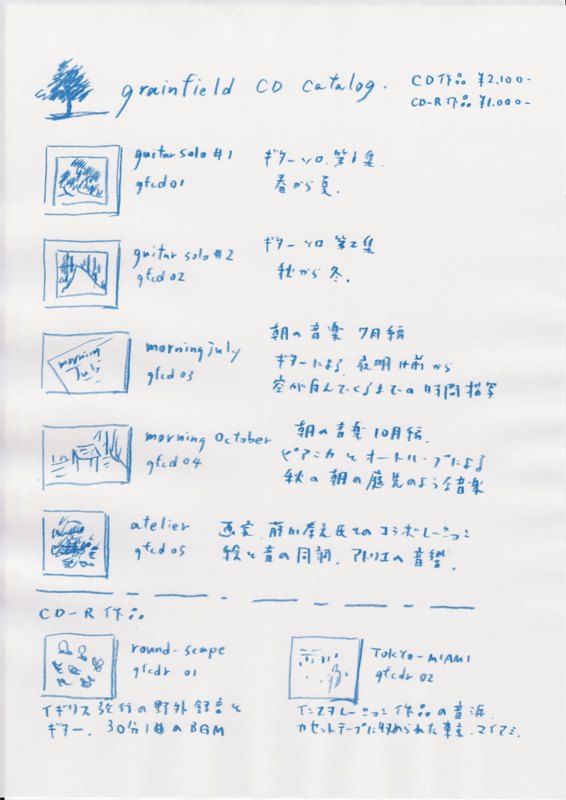 grainfield CD catalog.
CD作品 ¥2.100-
CD-R作品 ¥1.000-
guitar solo #1
gfcd 01
ギターソロ 第1集
春から夏.
guitar solo #2
gfcd 02
ギターソロ 第2集
秋から冬.
morning july
morning july
gfcd 03
朝の音楽 7月編
ギターによる 夜明け前から
空が白んでくるまでの時間描写
morning October
gfcd 04
朝の音楽 10月編.
ピアニカとオートハープによる
秋の朝の庭先のような音楽
atelier
gfcd 05
画家 氏とのコラボレーション
絵と音の同調. アトリエの音響.
CD-R作品
round-scape
gfcdr 01
イギリス旅行の野外録音と
ギター. 30分1曲のBGM
TOKYO-MIAMI
gfcdr 02
インスタレーション作品の音源.
カセットテープに収められた東京、マイアミ.